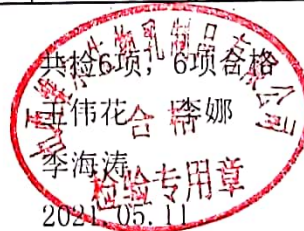 共检6项，6项合格
王伟花 李娜
李海涛
2021.05.11
合格
检验专用章